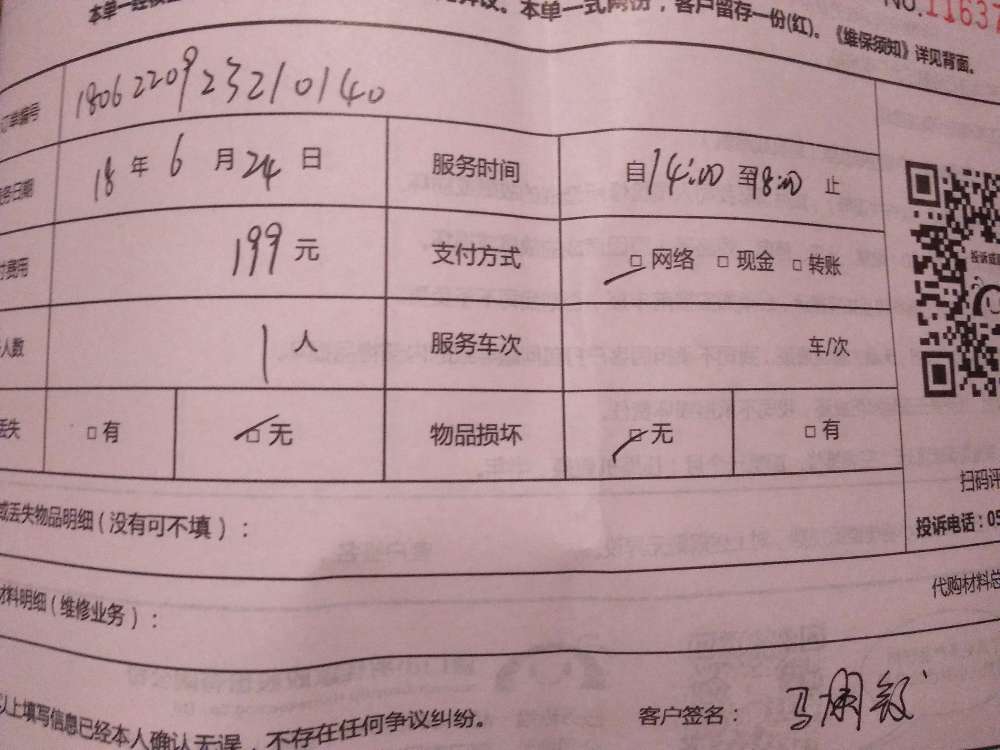 NO.11637
本单一式两份，客户留存一份(红)。《维保须知》详见背面。
订单编号 1806220923210140
务日期 18年6月24日 服务时间 自14:00至18:00止
付费用 199元 支付方式 □网络 □现金 □转账
人数 1人 服务车次 车/次
丢失 □有 □无 物品损坏 □无 □有
扫码评
或丢失物品明细（没有可不填）：
投诉电话：05
材料明细（维修业务）：
代购材料总
以上填写信息已经本人确认无误，不存在任何争议纠纷。
客户签名：